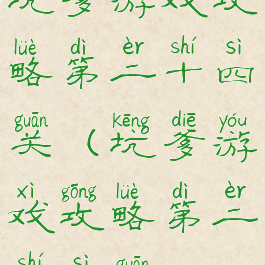 坑爹游戏攻
lüè dì èr shí sì
略第二十四
guān kēng diē yóu
关（坑爹游
xì gōng lüè dì èr
戏攻略第二
shí sì guān